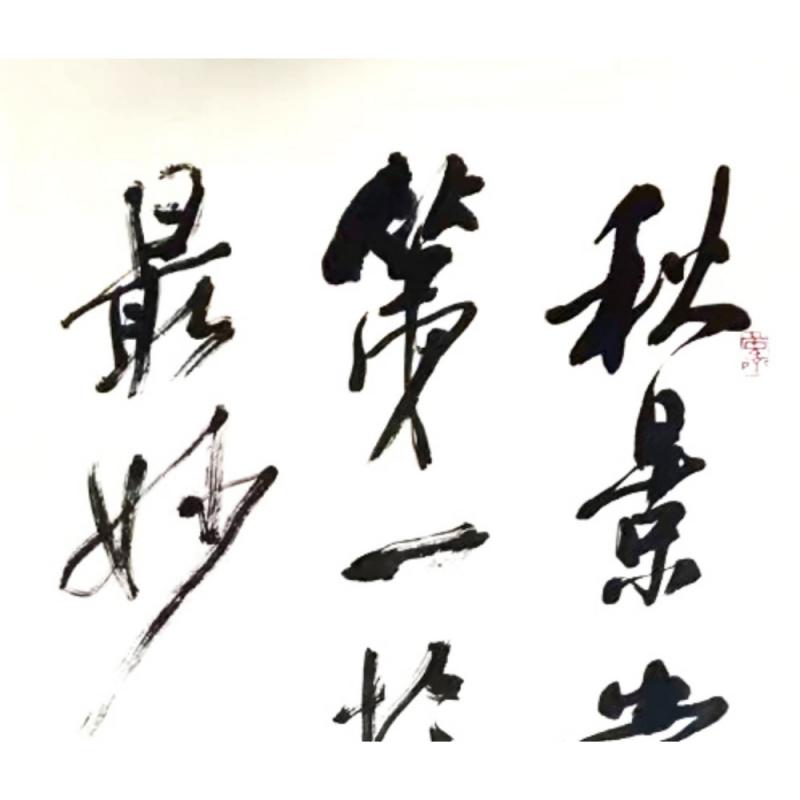 秋景
第一
最妙